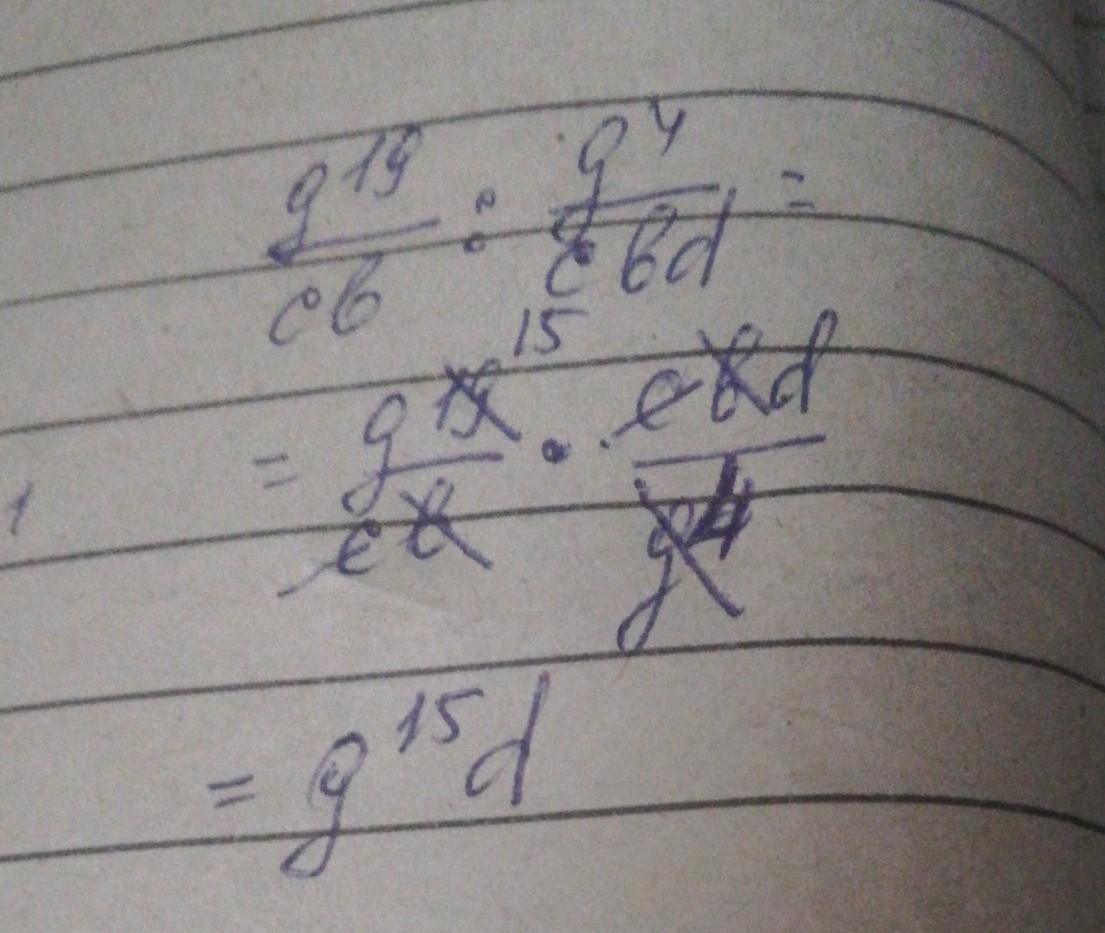 g^19/cb : g^4/cbd =
= g^19 15/cb · cbd/g^4
= g^15 d